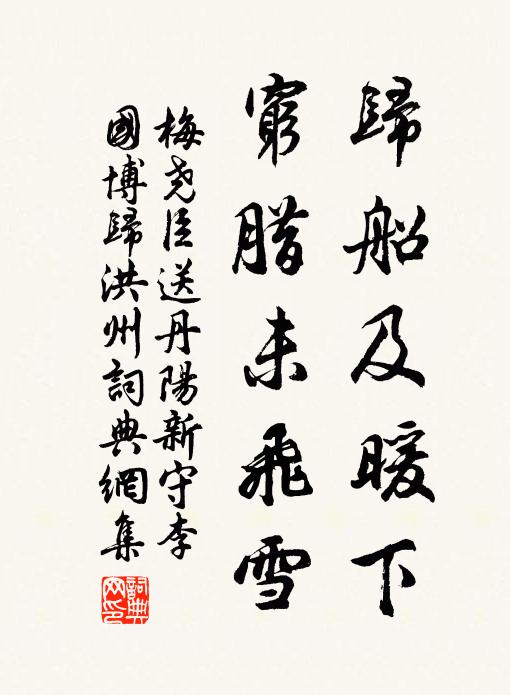 歸船及暖下
窮腊未飛雪
梅堯臣送丹陽新守李
國博歸洪州詞典網集
詞典
网印